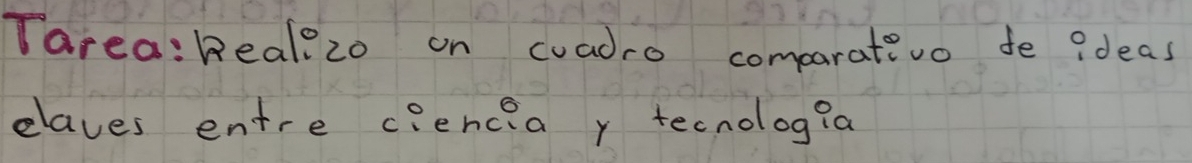 Tarea: Realizo un cuadro comparativo de ideas
claves entre ciencia y tecnologia